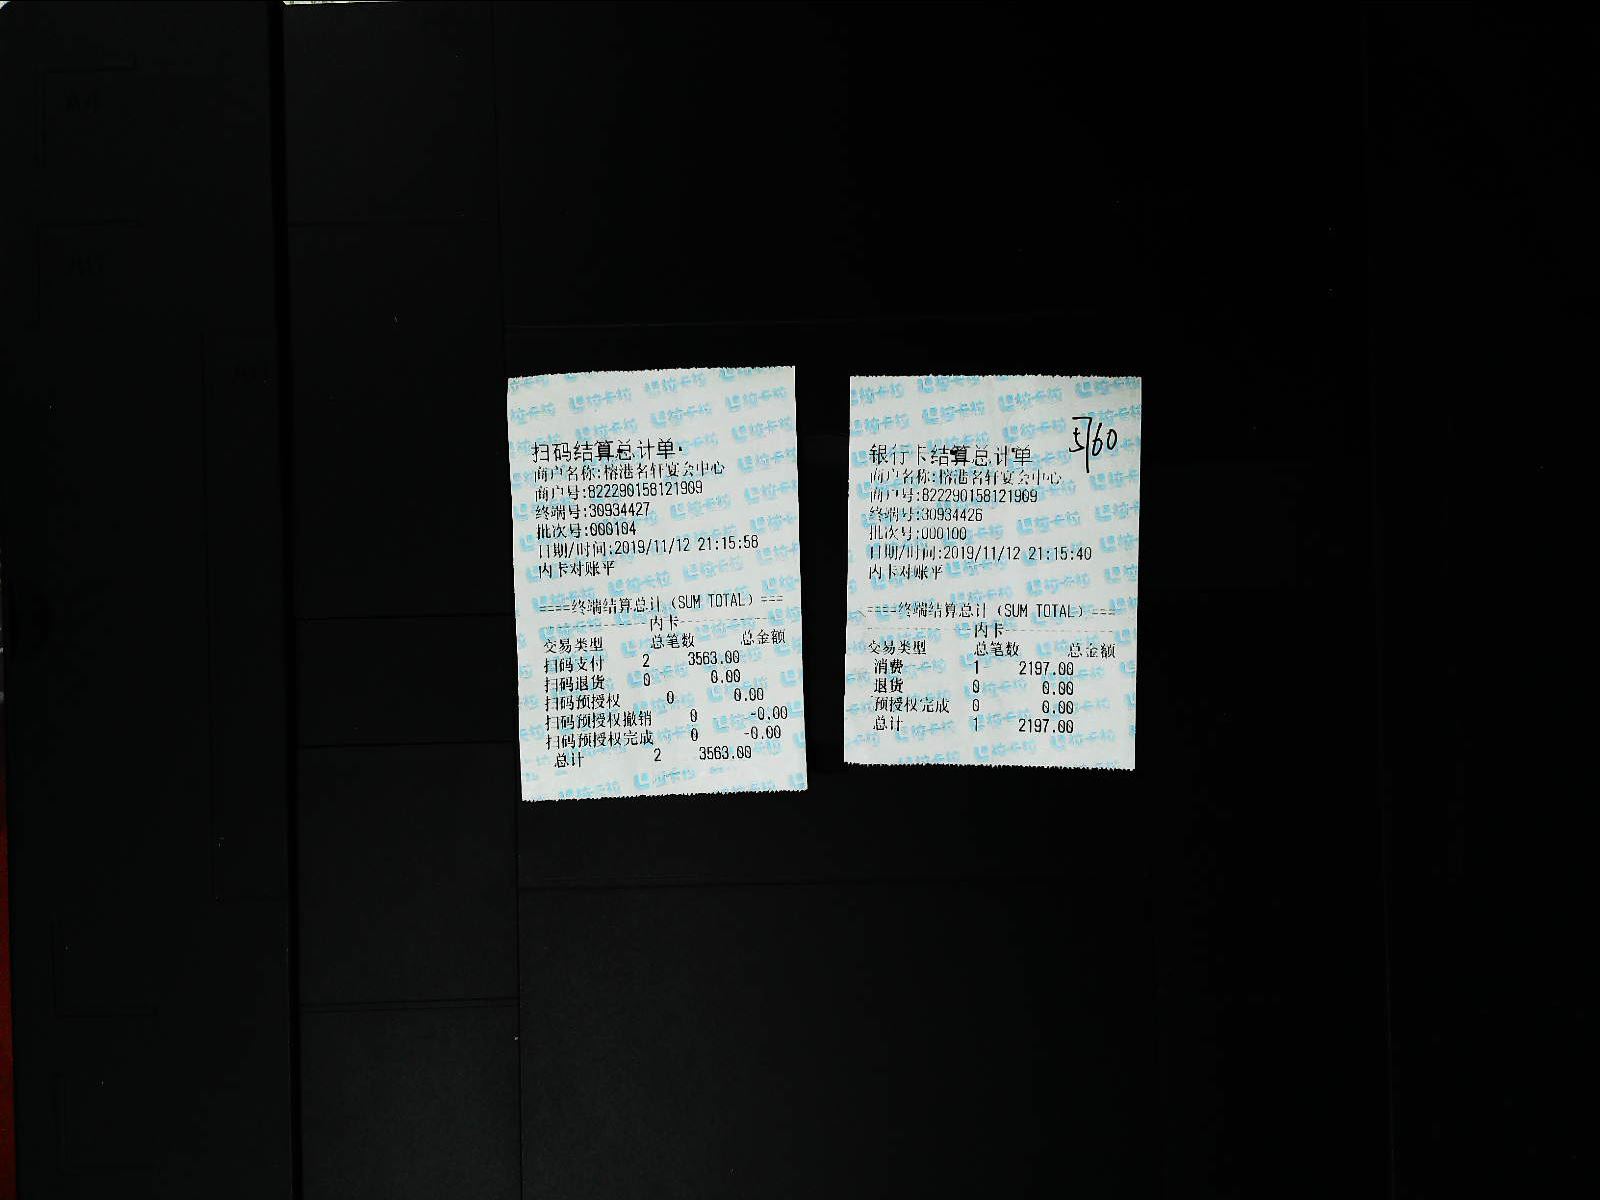 扫码结算总计单
商户名称:榕港名轩宴会中心
商户号:822290158121909
终端号:30934427
批次号:000104
日期/时间:2019/11/12 21:15:58
内卡对账平
====终端结算总计(SUM TOTAL)===
----------内卡----------
交易类型 总笔数 总金额
扫码支付 2 3563.00
扫码退货 0 0.00
扫码预授权 0 0.00
扫码预授权撤销 0 -0.00
扫码预授权完成 0 -0.00
总计 2 3563.00
5760
银行卡结算总计单
商户名称:榕港名轩宴会中心
商户号:822290158121909
终端号:30934426
批次号:000100
日期/时间:2019/11/12 21:15:40
内卡对账平
====终端结算总计(SUM TOTAL)===
----------内卡----------
交易类型 总笔数 总金额
消费 1 2197.00
退货 0 0.00
预授权完成 0 0.00
总计 1 2197.00
拉卡拉